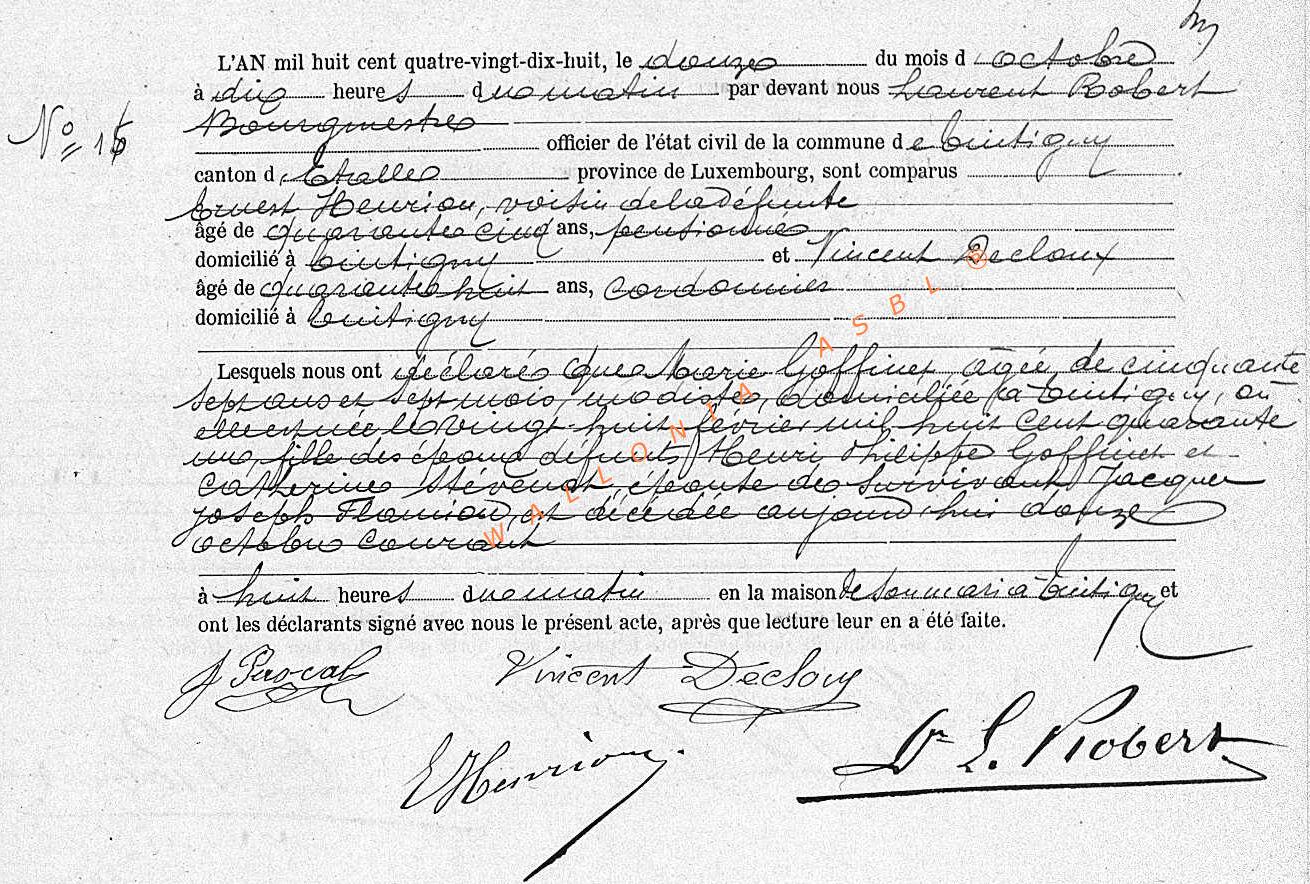 L'AN mil huit cent quatre-vingt-dix-huit, le douze du mois d'octobre
à dix heures du matin par devant nous Laurent Robert
Bourgmestre
N° 15
officier de l'état civil de la commune de Tintigny
canton d'Etalle province de Luxembourg, sont comparus
Ernest Henrion, voisin de la défunte
âgé de quarante cinq ans, pensionné
domicilié à Tintigny et Vincent Decloux
âgé de quarante huit ans, cordonnier
domicilié à Tintigny
Lesquels nous ont déclaré que Marie Goffinet agée de cinquante
sept ans et sept mois, modiste, domiciliée à Tintigny, où
elle est née le vingt-huit février mil huit cent quarante
un, fille des époux défunts Henri Philippe Goffinet et
Catherine Stévenot, épouse de survivant Jacques
Joseph Flamion, est décédée aujourd'hui douze
octobre courant
à huit heures du matin en la maison de son mari à Tintigny et
ont les déclarants signé avec nous le présent acte, après que lecture leur en a été faite.
J Pascal Vincent Decloux
E Henrion
Dr L. Robert
WALLONIA ASBL @